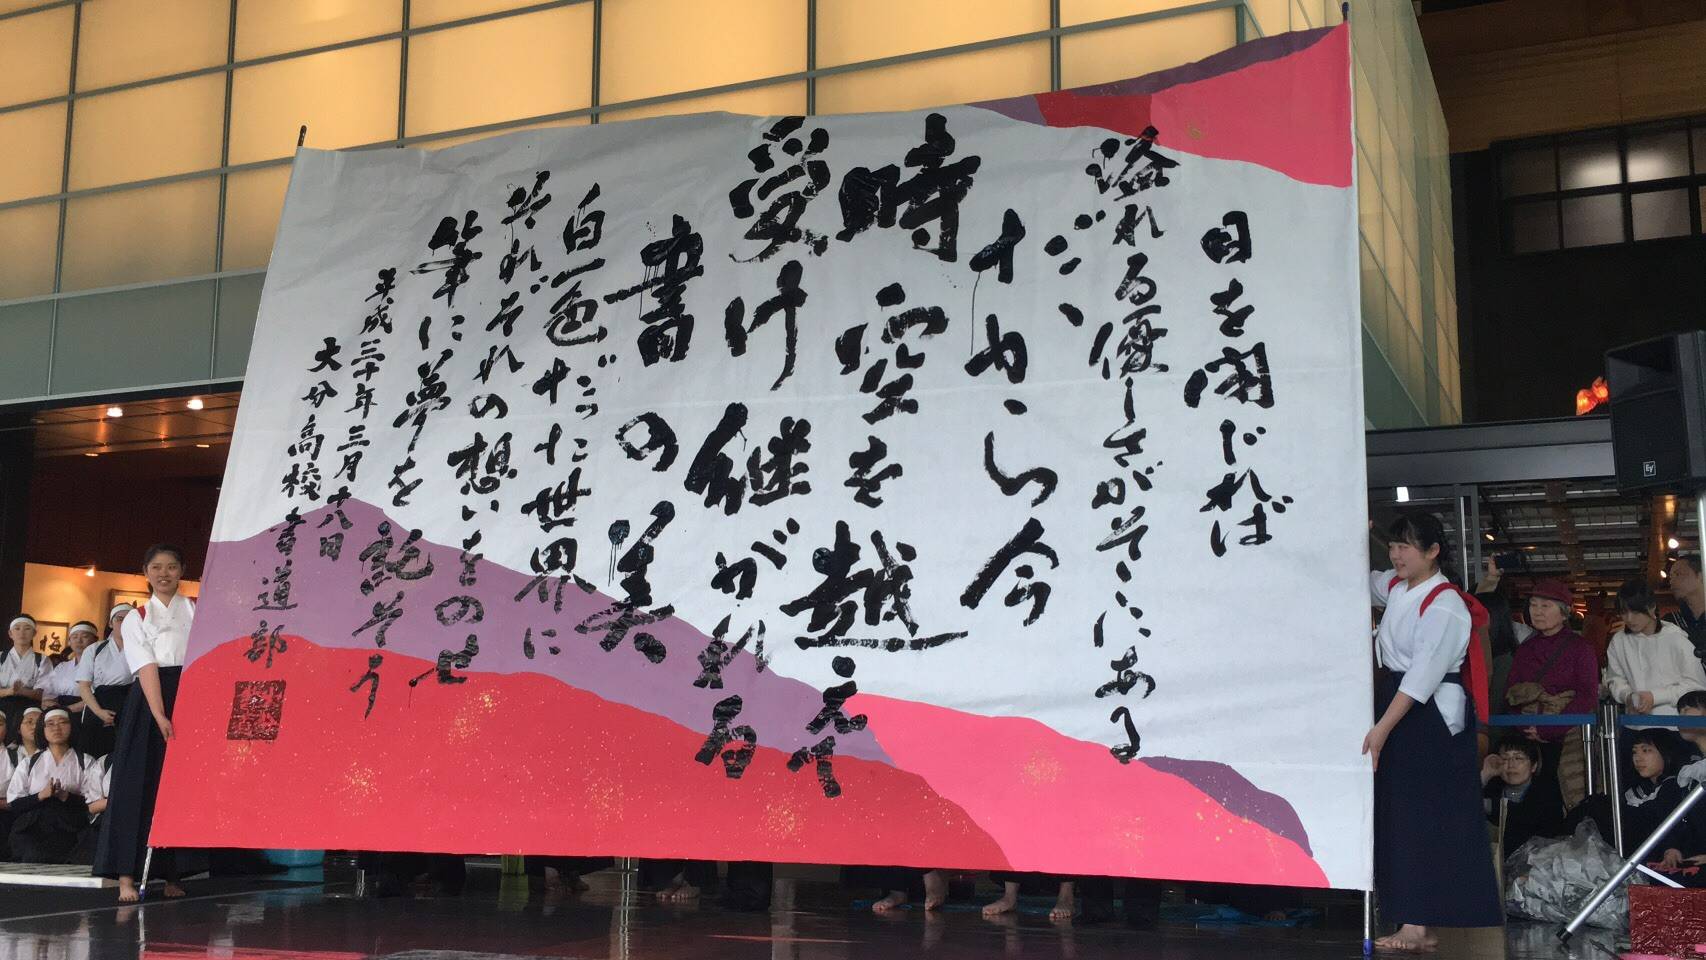 目を閉じれば
溢れる優しさがそこにある
だ、
十から今
時空を越えて
受け継がれる
書の美
白一色だった世界に
それぞれの想いをのせ
筆に夢を託そう
平成三十年三月十八日
大分高校書道部
EV